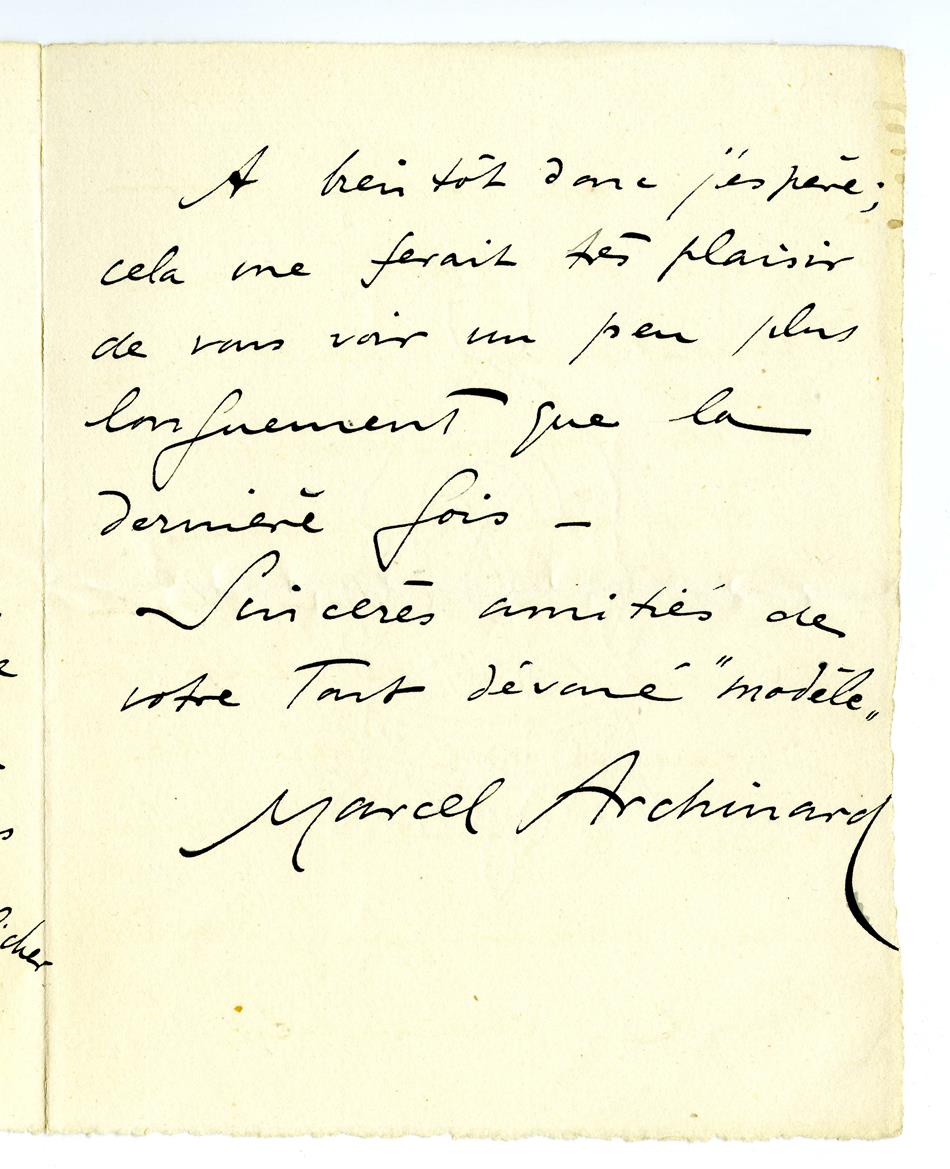 A bientôt donc j'espère;
cela me ferait très plaisir
de vous voir un peu plus
longuement que la
dernière fois –
Sincères amitiés de
votre tout dévoué "modèle„
Marcel Archinard